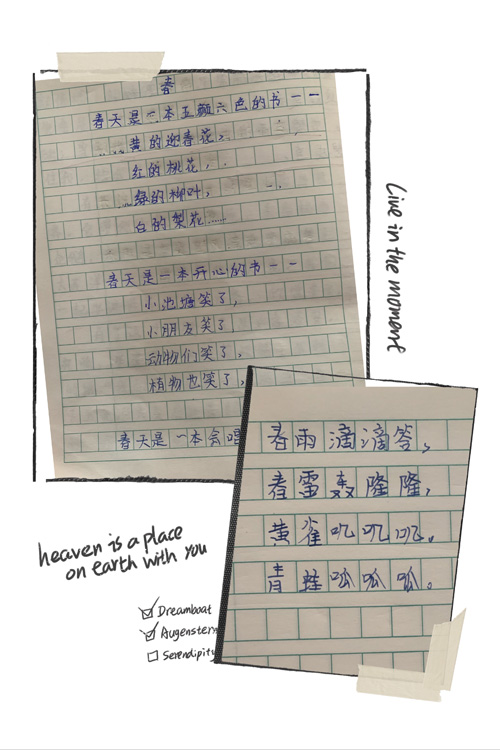 春
春天是一本五颜六色的书——
黄的迎春花，
红的桃花，
绿的柳叶，
白的梨花……
春天是一本开心的书——
小池塘笑了，
小朋友笑了
动物们笑了，
植物也笑了，
春天是一本会唱
春雨滴滴答，
春雷轰隆隆，
黄雀叽叽叽。
青蛙呱呱呱。
Live in the moment
heaven is a place
on earth with you
Dreamboat
Augenstern
Serendipity